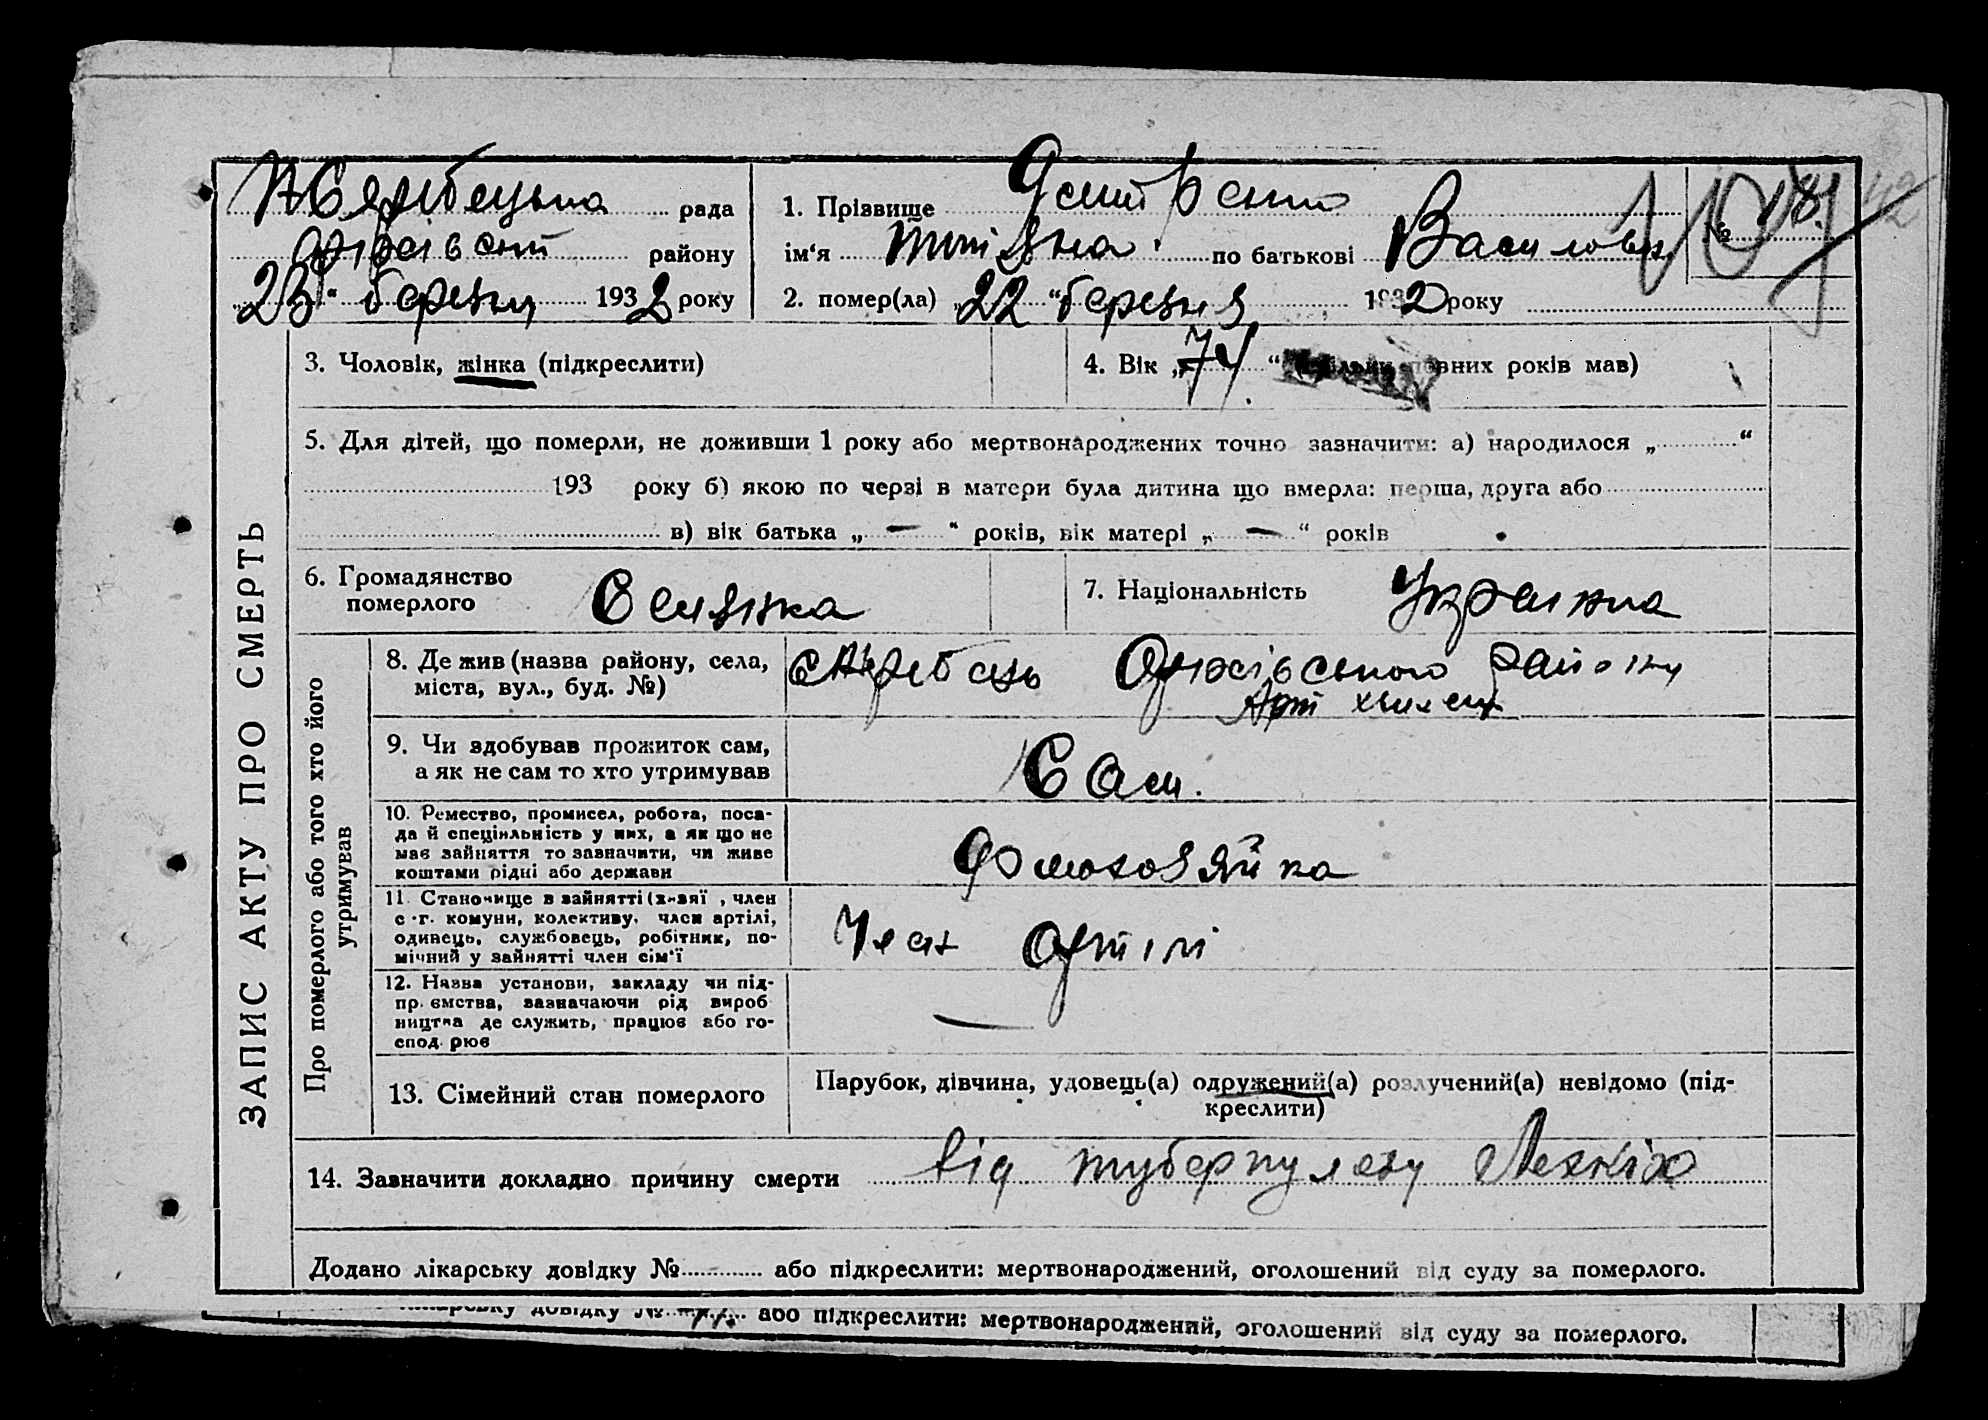 Жеребецька рада
Оріхівський району
„23“ березня 1932 року
1. Прізвище Дмитренко
ім'я Тетяна по батькові Василовна
№ 18
2. помер(ла) „22“ березня 1932 року
ЗАПИС АКТУ ПРО СМЕРТЬ
3. Чоловік, жінка (підкреслити)
4. Вік „74“ повних років мав)
5. Для дітей, що померли, не доживши 1 року або мертвонароджених точно зазначити: а) народилося „ “
193 року б) якою по черзі в матери була дитина що вмерла: перша, друга або
в) вік батька „ — “ років, вік матері „ — “ років
6. Громадянство
померлого
Селянка
7. Національність Українка
Про померлого або того хто його
утримував
8. Де жив (назва району, села,
міста, вул., буд. №)
с Жеребець Оріхівського району
Арт
9. Чи здобував прожиток сам,
а як не сам то хто утримував
Сам.
10. Ремество, промисел, робота, поса-
да й спеціяльність у них, а як що не
має зайняття то зазначити, чи живе
коштами рідні або держави
Домохозяйка
11. Становище в зайнятті (хазяї , член
с.-г. комуни, колективу, член артілі,
одинець, службовець, робітник, по-
мічний у зайнятті член сім'ї
Член Артілі
12. Назва установи, закладу чи під-
пр. ємства, зазначаючи рід вироб
ництва де служить, працює або го-
спод. рює
—
13. Сімейний стан померлого
Парубок, дівчина, удовець(а) одружений(а) розлучений(а) невідомо (під-
креслити)
14. Зазначити докладно причину смерти від туберкулезу Легкіх
Додано лікарську довідку № або підкреслити: мертвонароджений, оголошений від суду за померлого.
лікарську довідку № або підкреслити: мертвонароджений, оголошений від суду за померлого.